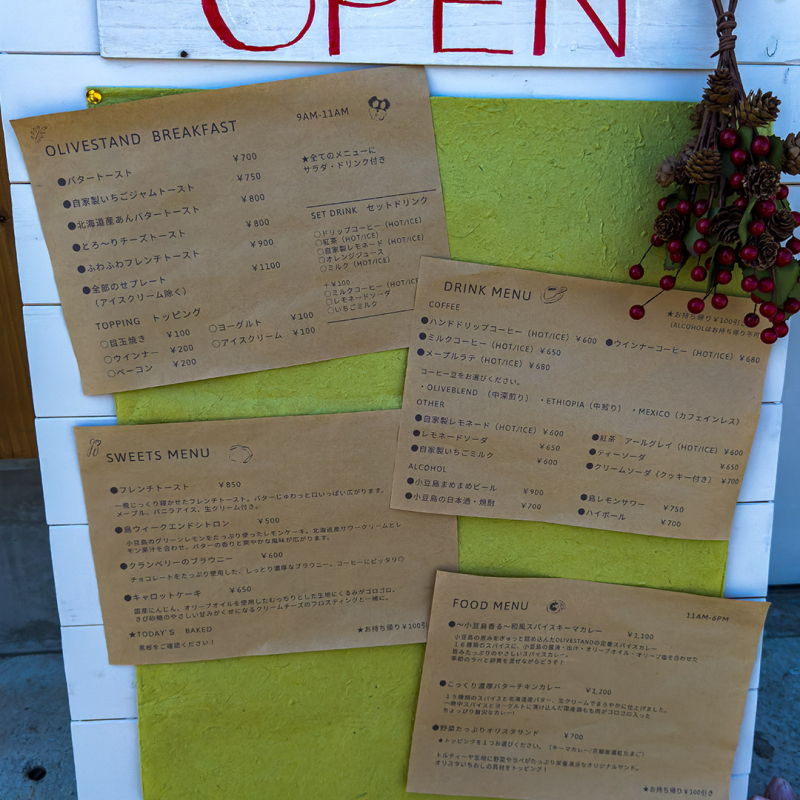 OPEN
OLIVESTAND BREAKFAST 9AM-11AM
●バタートースト ¥700
●自家製いちごジャムトースト ¥750
●北海道産あんバタートースト ¥800
●とろ〜りチーズトースト ¥800
●ふわふわフレンチトースト ¥900
●全部のせプレート ¥1100
(アイスクリーム除く)
★全てのメニューに
サラダ・ドリンク付き
SET DRINK セットドリンク
○ドリップコーヒー (HOT/ICE)
○紅茶 (HOT/ICE)
○自家製レモネード (HOT/ICE)
○オレンジジュース
○ミルク (HOT/ICE)
+¥100
○ミルクコーヒー (HOT/ICE
○レモネードソーダ
○いちごミルク
TOPPING トッピング
○目玉焼き ¥100 ○ヨーグルト ¥100
○ウインナー ¥200 ○アイスクリーム ¥100
○ベーコン ¥200
DRINK MENU
★お持ち帰り¥100引
(ALCOHOLはお持ち帰り不可
COFFEE
●ハンドドリップコーヒー (HOT/ICE) ¥600 ●ウインナーコーヒー (HOT/ICE) ¥680
●ミルクコーヒー (HOT/ICE) ¥650
●メープルラテ (HOT/ICE) ¥680
コーヒー豆をお選びください。
・OLIVEBLEND (中深煎り) ・ETHIOPIA (中煎り) ・MEXICO (カフェインレス)
OTHER
●自家製レモネード (HOT/ICE) ¥600 ●紅茶 アールグレイ (HOT/ICE) ¥600
●レモネードソーダ ¥650 ●ティーソーダ ¥650
●自家製いちごミルク ¥600 ●クリームソーダ (クッキー付き) ¥700
ALCOHOL
●小豆島まめまめビール ¥900 ●島レモンサワー ¥750
●小豆島の日本酒・焼酎 ¥700 ●ハイボール ¥700
SWEETS MENU
●フレンチトースト ¥850
一晩じっくり寝かせたフレンチトースト。バターじゅわっと口いっぱい広がります。
メープル、バニラアイス、生クリーム付き。
●島ウィークエンドシトロン ¥500
小豆島のグリーンレモンをたっぷり使ったレモンケーキ。北海道産サワークリームとレ
モン果汁を合わせ、バターの香りと爽やかな風味が広がります。
●クランベリーのブラウニー ¥600
チョコレートをたっぷり使用した、しっとり濃厚なブラウニー。コーヒーにピッタリ◎
●キャロットケーキ ¥650
国産にんじん、オリーブオイルを使用したむっちりとした生地にくるみがゴロゴロ。
きび砂糖のやさしい甘みがくせになるクリームチーズのフロスティングと一緒に。
★TODAY'S BAKED
黒板をご確認ください! ★お持ち帰り¥100引
FOOD MENU 11AM-6PM
●〜小豆島香る〜和風スパイスキーマカレー ¥1,100
小豆島の恵みをぎゅっと詰め込んだOLIVESTANDの定番スパイスカレー
16種類のスパイスに、小豆島の醤油・出汁・オリーブオイル・オリーブ塩を合わせた
旨みたっぷりのやさしいスパイスカレー。
●こっくり濃厚バターチキンカレー ¥1,200
15種類のスパイスと北海道産バター、生クリームでまろやかに仕上げました。
一晩中スパイスとヨーグルトに漬け込んだ国産鶏もも肉がゴロゴロ入った
ちょっぴり贅沢なカレー!
●野菜たっぷりオリスタサンド ¥700
★トッピングを1つお選びください。
トルティーヤ生地に野菜やラペがたっぷり栄養満点なオリジナルサンド。
オリスタいちおしの具材をトッピング!
★お持ち帰り¥100引き